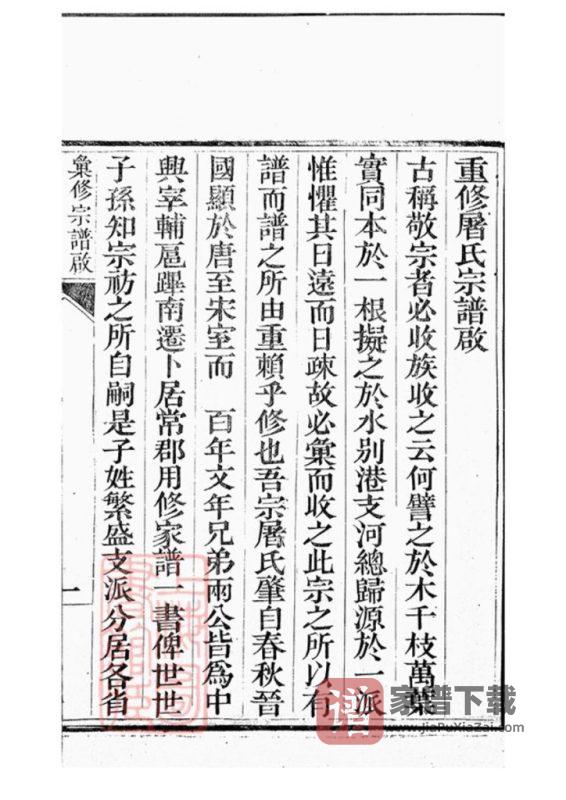 重修屠氏宗譜啟
古稱敬宗者必收族收之云何譬之於木千枝萬葉
實同本於一根擬之於水別港支河總歸源於一派
惟懼其日遠而日疎故必彙而收之此宗之所以有
譜而譜之所由重賴乎修也吾宗屠氏肇自春秋晉
國顯於唐至宋室而 百年文年兄弟兩公皆為中
興宰輔扈蹕南遷卜居常郡用修家譜一書俾世世
子孫知宗祊之所自嗣是子姓繁盛支派分居各省
彙修宗譜啟
一
譜
家谱下载
www.jiaPuXiaZai.com